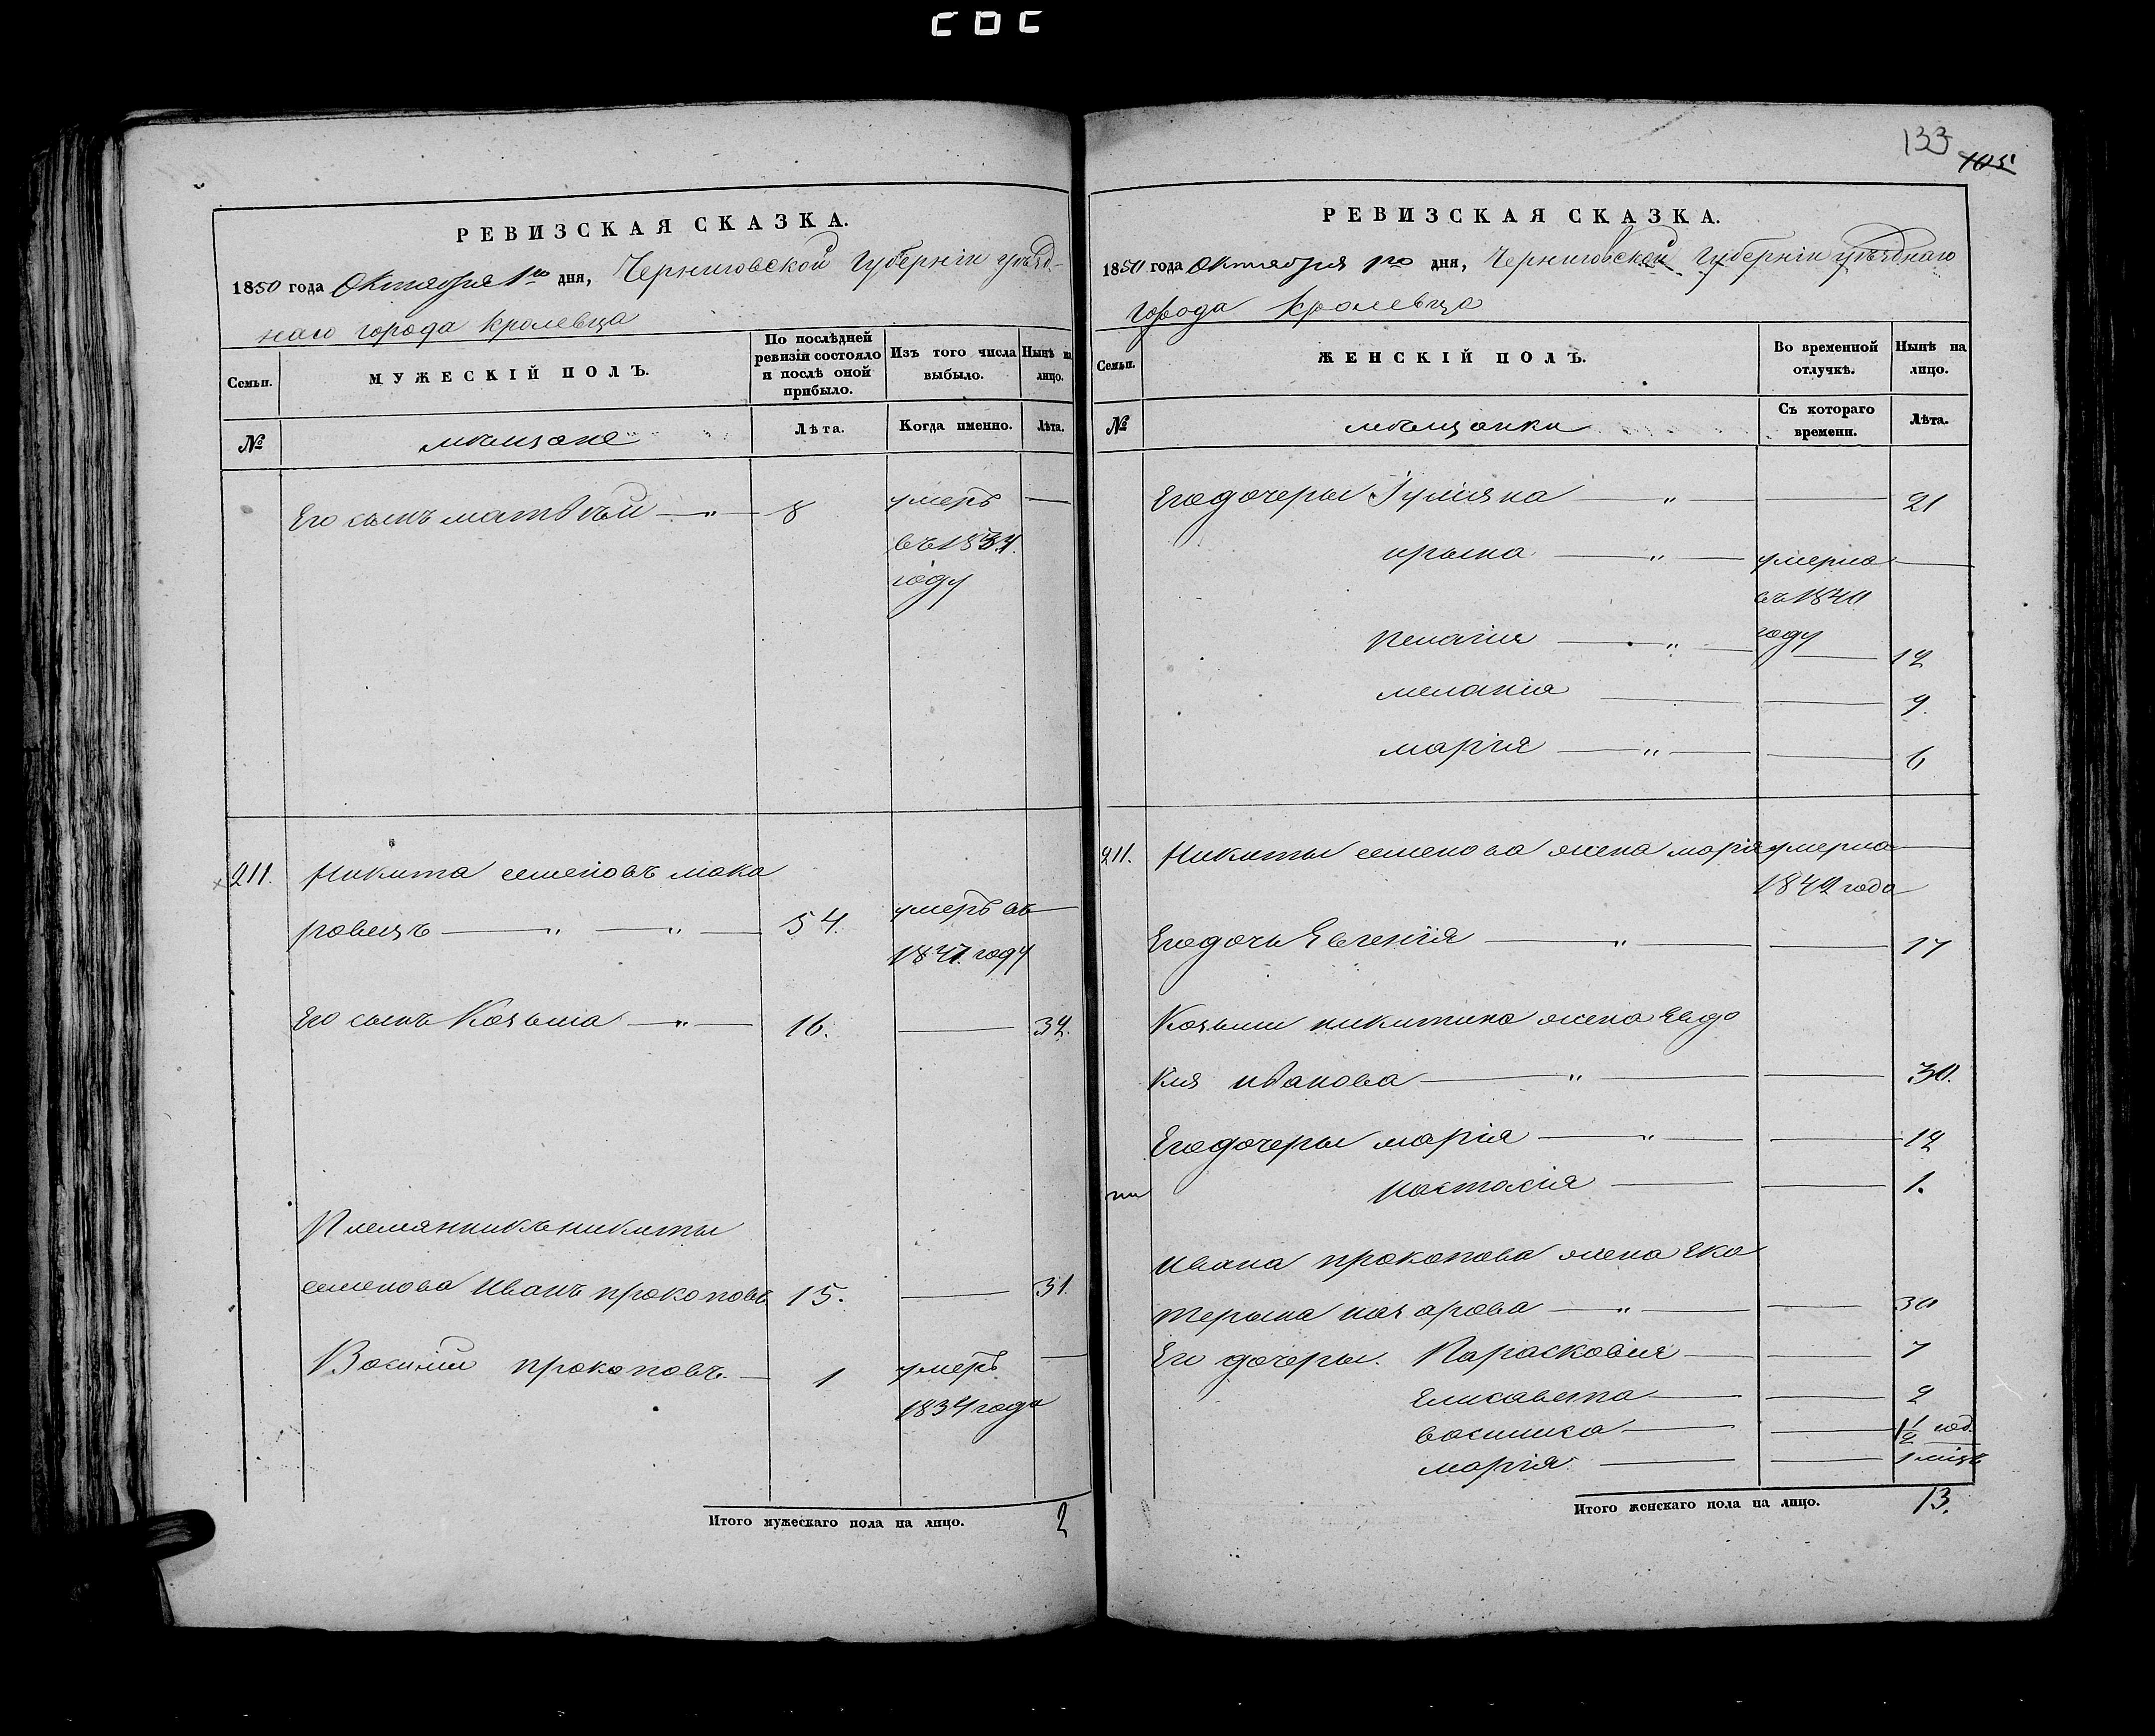 133
105
РЕВИЗСКАЯ СКАЗКА.
1850 года Октября 1го дня, Черниговской Губерніи уѣзд-
наго города Кролевца
Семьи.
МУЖЕСКІЙ ПОЛЪ.
По послѣдней ревизіи состояло и послѣ оной прибыло.
Изъ того числа выбыло.
Нынѣ на лицо.
№
мѣщане
Лѣта.
Когда именно.
Лѣта.
Его сынъ матвѣй — „ — 8 умеръ —
въ 1834
году
211. Никита семеновъ мака
ровецъ — „ — „ — 54. умеръ въ —
1841. году
Его сынъ Козьма — „ — 16. — 32.
Племянникъ никиты
семенова Иванъ прокоповъ 15. — 31.
Василій прокоповъ. — 1 умеръ —
1834 года
Итого мужескаго пола на лицо. 2
РЕВИЗСКАЯ СКАЗКА.
1850 года Октября 1го дня, Черниговской Губерніи уѣзднаго
города Кролевца
Семьи.
ЖЕНСКІЙ ПОЛЪ.
Во временной отлучкѣ.
Нынѣ на лицо.
№
мѣщанки
Съ котораго времени.
Лѣта.
Его дочеры Іулияна — „ — 21
ирына — „ — умерла —
въ 1840
году
пелагия — „ — — 12
мелания — — 9.
марія — „ — — 6
211. Никиты семенова жена марія умерла —
1842 года
Его дочь Евгенія — „ — — 17
Козьми никитина жена Евдо
кия иванова — „ — — 30.
Его дочеры марія — „ — — 12
настасия — — 1.
Ивана прокопова жена ека
терына назарова — „ — — 30
Его дочеры. Парасковия — — 7
Елисавета — — 2
василиса — — 1 1/2 год.
марія — — 1 міцъ
Итого женскаго пола на лицо. 13.